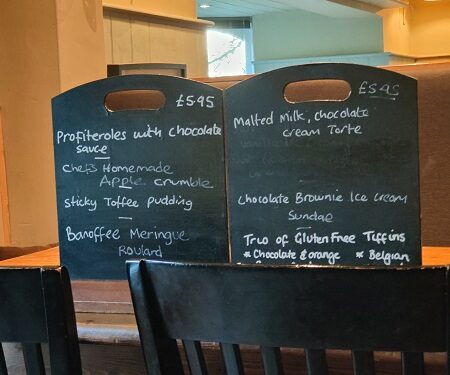 £5.95
Profiteroles with chocolate
sauce
Chef's Homemade
Apple crumble
Sticky Toffee pudding
Banoffee Meringue
Roulard
£5.95
Malted Milk, chocolate
cream Torte
Chocolate Brownie Ice Cream
Sundae
Trio of Gluten Free Tiffins
* Chocolate & orange * Belgian